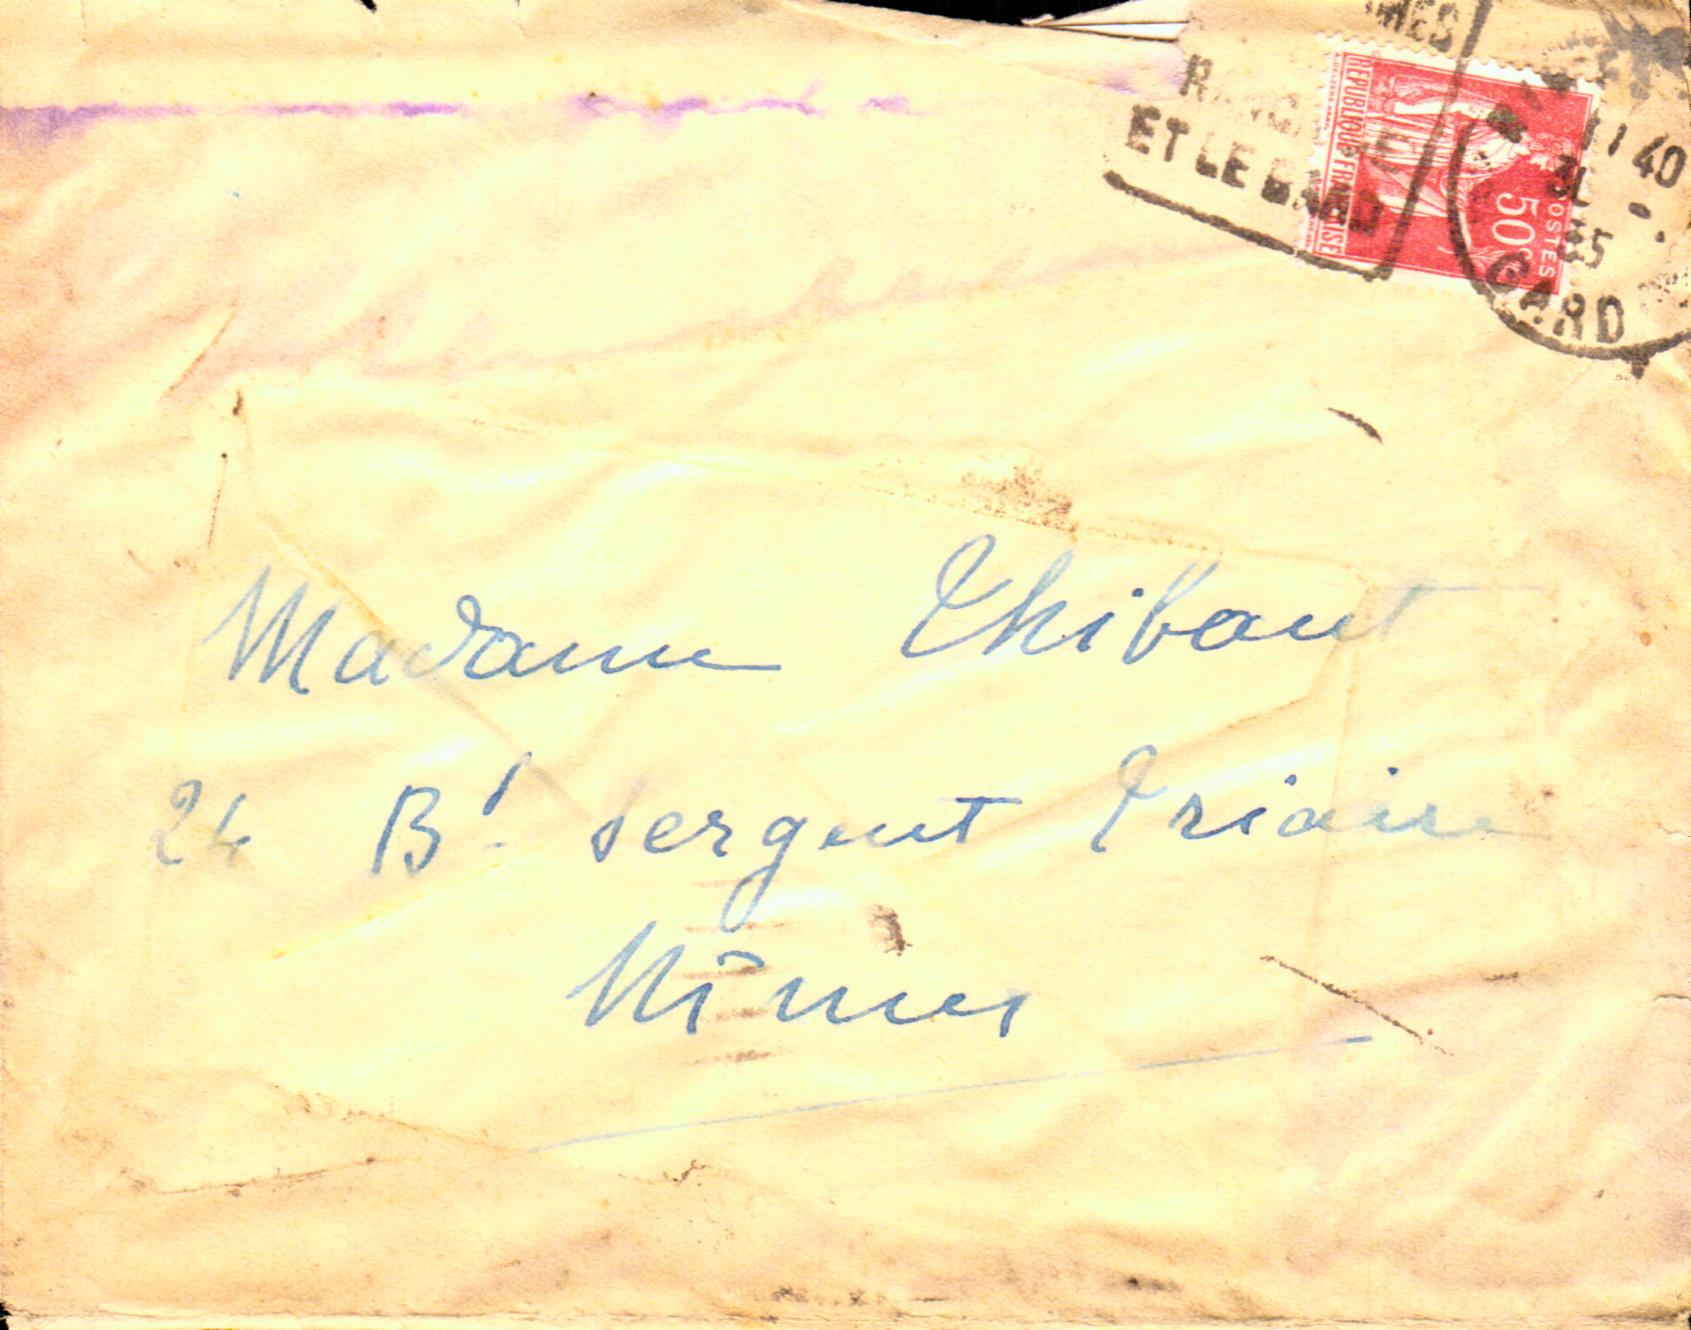 ET LE GARD
RÉPUBLIQUE FRANÇAISE
POSTES
50c
17 40
35
GARD
Madame Thibaut
24 Bd Sergent Triaire
Nîmes